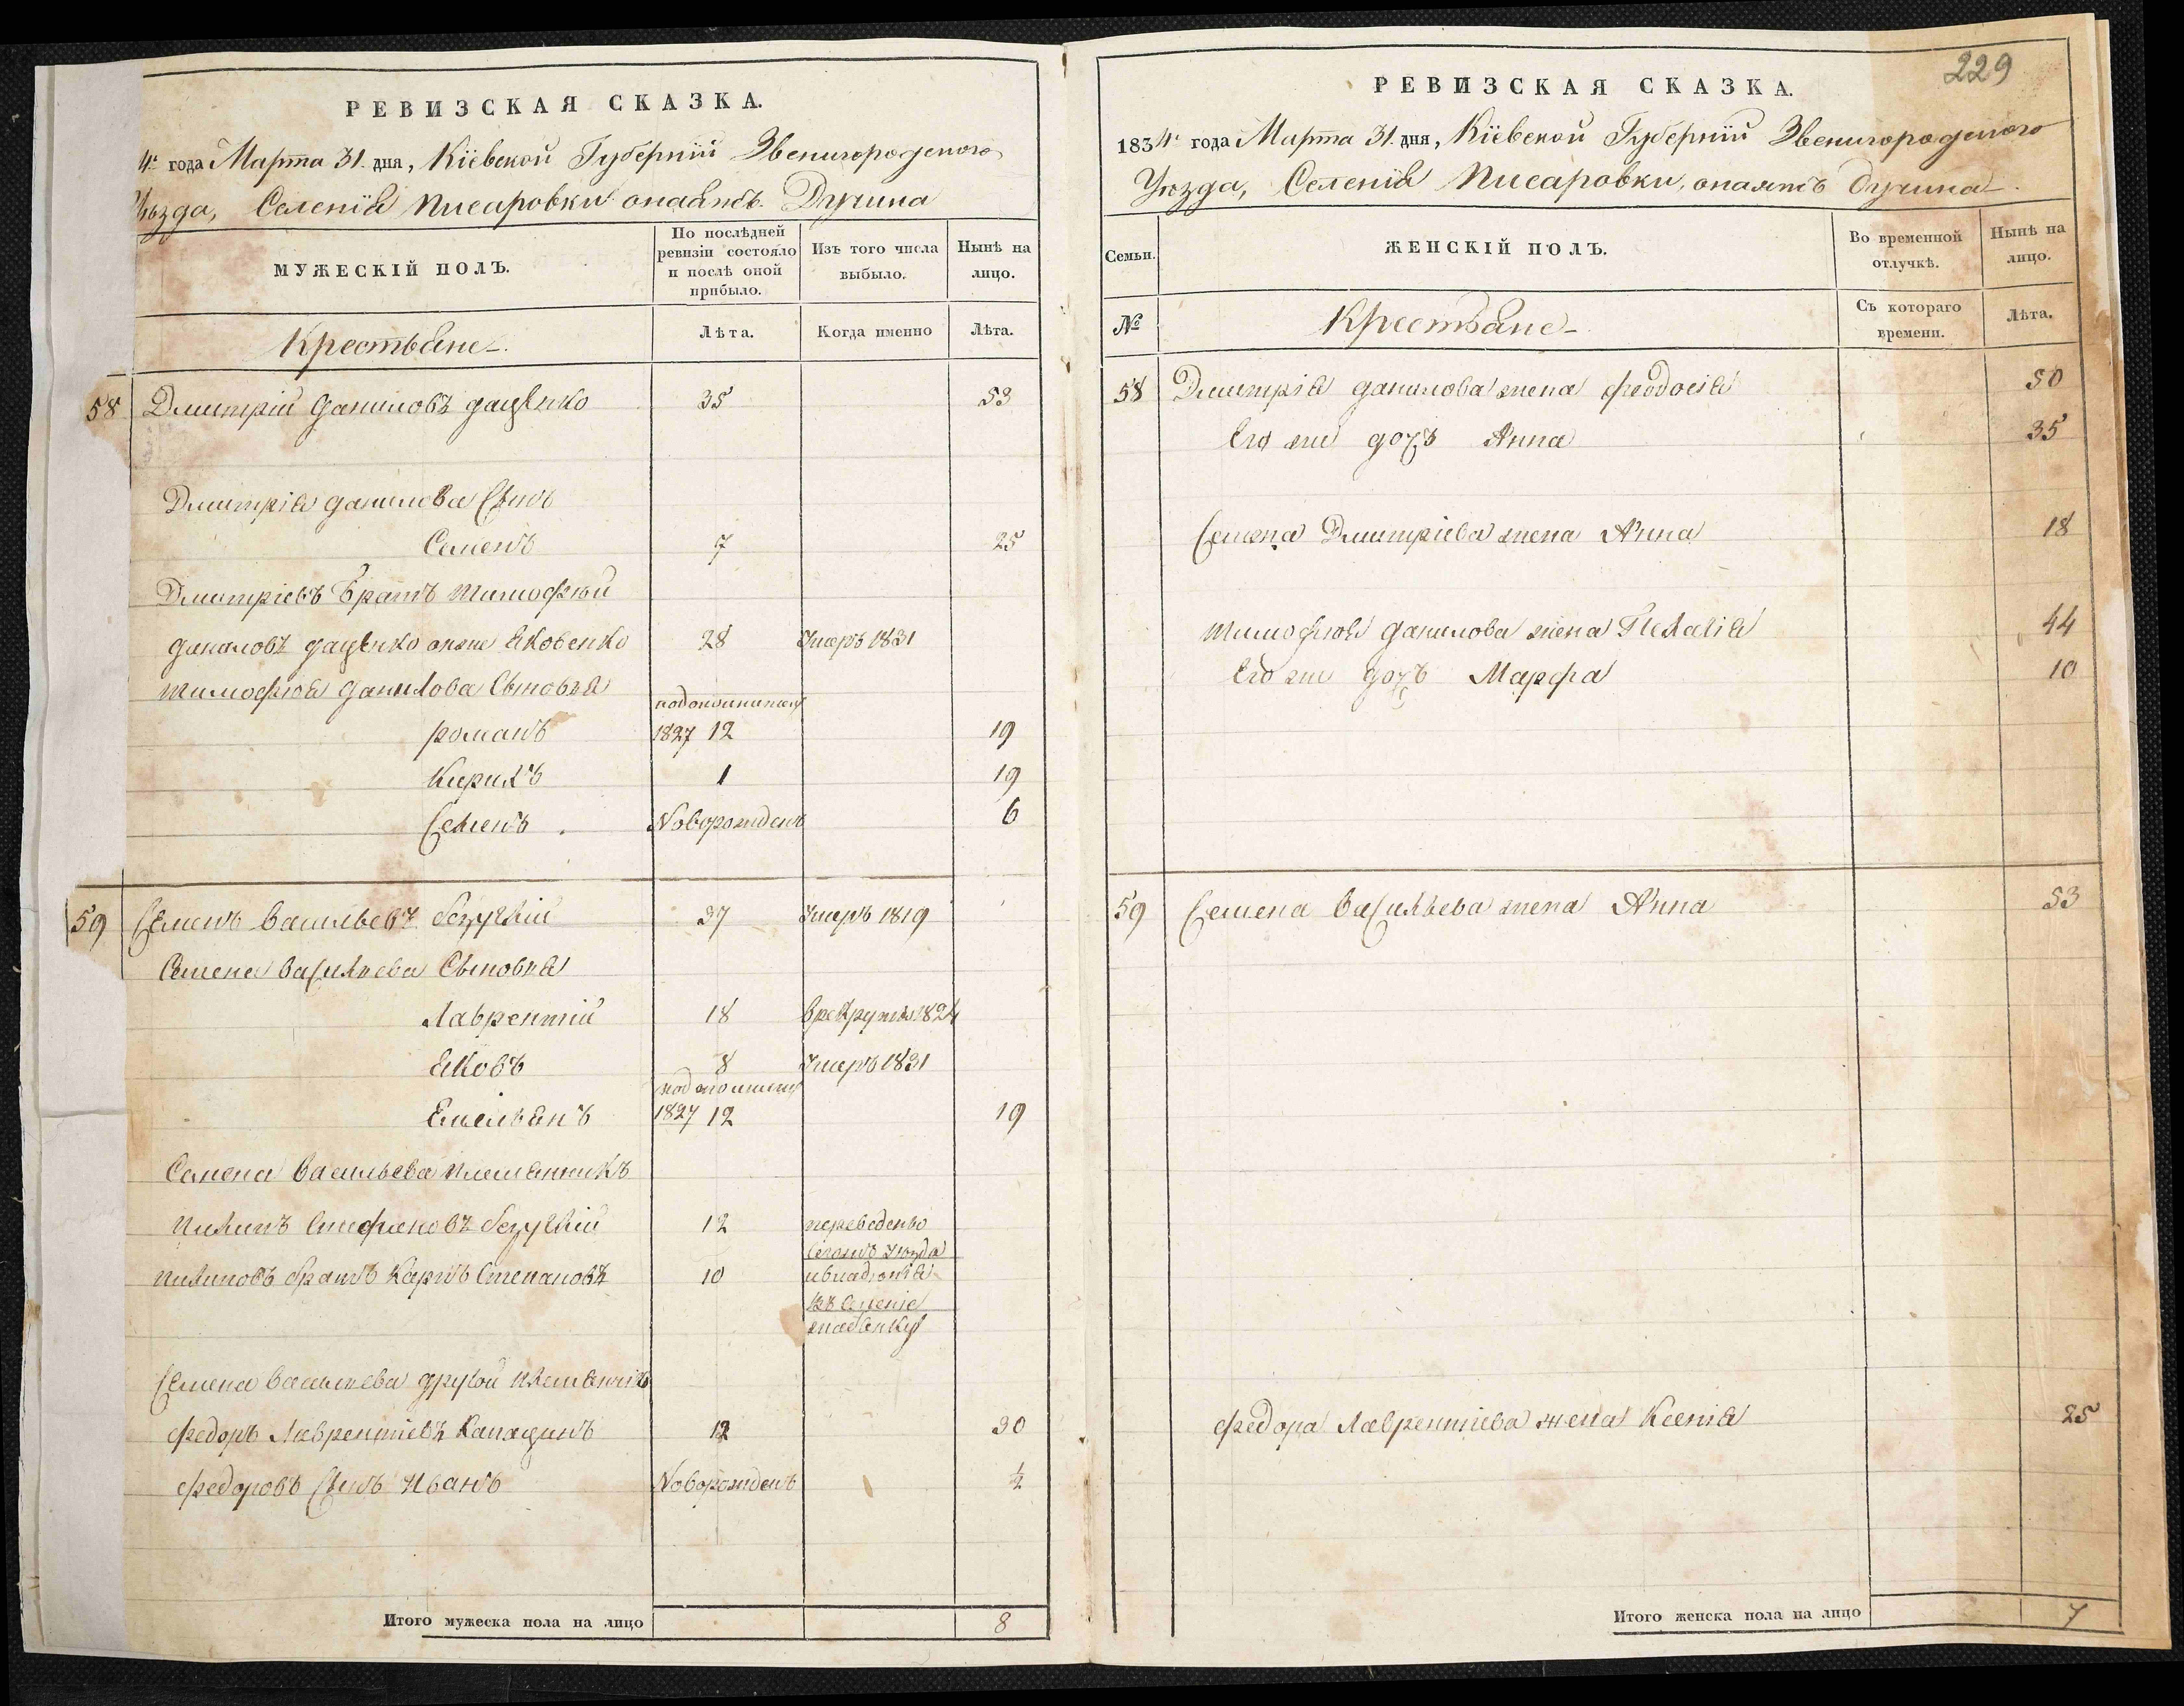 РЕВИЗСКАЯ СКАЗКА.
4. года Марта 31. дня, Кіевской Губерніи Звенигородского
Уѣзда, Селенія Писаровки
МУЖЕСКІЙ ПОЛЪ.
По послѣдней ревизіи состояло и послѣ оной прибыло.
Изъ того числа выбыло.
Нынѣ на лицо.
Крестьяне
Лѣта.
Когда именно
Лѣта.
58 Дмитрій Даниловъ Даценко 35 53
Дмитрія Данилова Сынъ
Семенъ 7 25
Дмитріевъ Братъ Тимофѣй
Даниловъ Даценко онже Яковенко 28 Умеръ 1831
Тимофѣя Данилова Сыновья
Романъ 1827 12 19
Кирилъ 1 19
Семенъ Новорожденъ 6
59 Семенъ Васильевъ 37 Умеръ 1819
Семена Васильева Сыновья
Лаврентій 18 в рекруты 1824
Яковъ 8 Умеръ 1831
Емельянъ 1827 12 19
Семена Васильева племянникъ
Пилипъ 12 переведены
сегожъ уѣзда
Пилиповъ братъ Карпъ Степановъ 10
въ Селеніе
Семена Васильева другой племянникъ
Федоръ Лаврентіевъ 12 30
Федоровъ Сынъ Иванъ Новорожденъ ½
Итого мужеска пола на лицо 8
229
РЕВИЗСКАЯ СКАЗКА.
1834 года Марта 31. дня, Кіевской Губерніи Звенигородского
Уѣзда, Селенія Писаровки,
Семьи.
ЖЕНСКІЙ ПОЛЪ.
Во временной отлучкѣ.
Нынѣ на лицо.
№
Крестьяне
Съ котораго времени.
Лѣта.
58 Дмитрія Данилова жена Феодосія 50
Его же дочь Анна 35
Семена Дмитріева жена Анна 18
Тимофѣя Данилова жена Пелагія 44
Его же дочь Марфа 10
59 Семена Васильева жена Анна 53
Федора Лаврентіева жена Ксенія 25
Итого женска пола на лицо 7